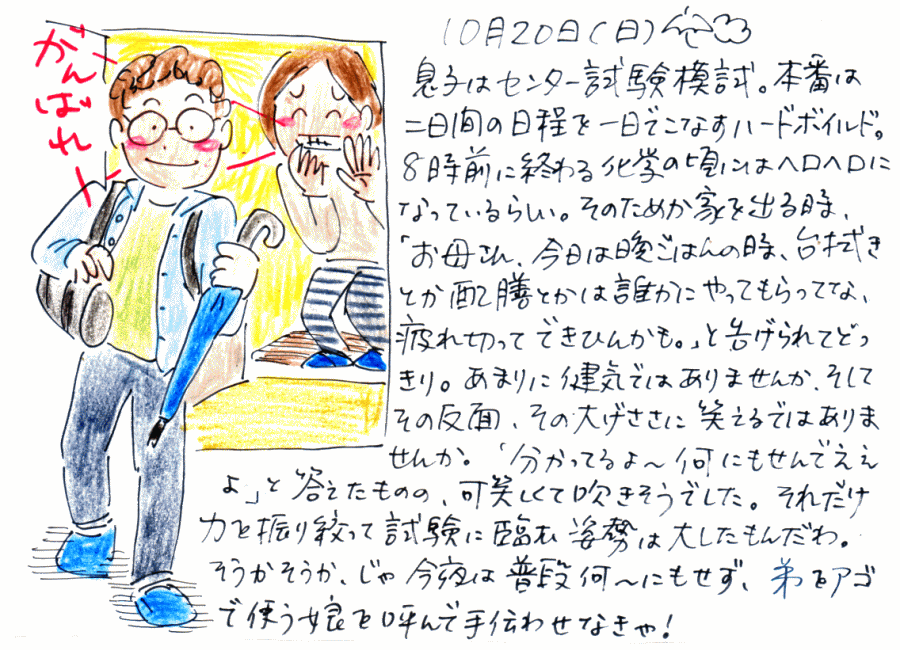 がんばれー
10月20日(日)
息子はセンター試験模試。本番は
二日間の日程を一日でこなすハードボイルド。
8時前に終わる化学の頃にはヘロヘロに
なっているらしい。そのためか家を出る時、
「お母さん、今日は晩ごはんの時、台拭き
とか配膳とかは誰かにやってもらってな、
疲れ切ってできひんかも。」と告げられてどっ
きり。あまりに健気ではありませんか、そして
その反面、その大げささに笑えるではありま
せんか。「分かってるよ〜何にもせんでええ
よ」と答えたものの、可笑しくて吹きそうでした。それだけ
力を振り絞って試験に臨む姿勢は大したもんだわ。
そうかそうか、じゃ今夜は普段何〜にもせず、弟をアゴ
で使う娘を呼んで手伝わせなきゃ!